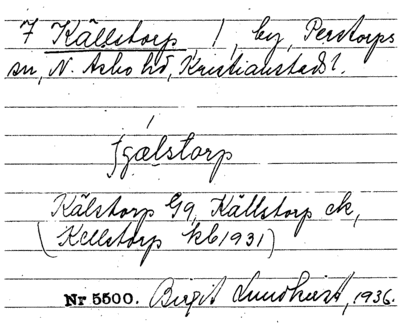 7 Källstorp 1, by, Perstorps
sn, N. Åsbo hd, Kristianstads l.
ʃgælstorp
Källstorp G9, Källstorp ek,
(Kellstorp kb 1931)
Nr 5500. Birgit Lundkvist, 1936.